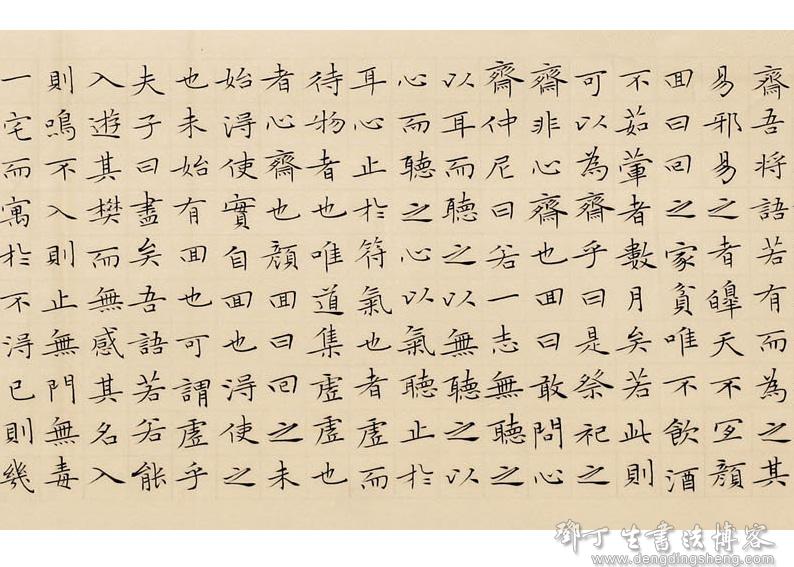 齋吾將語若有而為之其
易邪易之者皞天不宜顏
回曰回之家貧唯不飲酒
不茹葷者數月矣若此則
可以為齋乎曰是祭祀之
齋非心齋也回曰敢問心
齋仲尼曰若一志無聽之
以耳而聽之以無聽之以
心而聽之心以氣聽止於
耳心止於符氣也者虛而
待物者也唯道集虛虛也
者心齋也顏回曰回之未
始得使實自回也得使之
也未始有回也可謂虛乎
夫子曰盡矣吾語若若能
入遊其樊而無感其名入
則鳴不入則止無門無毒
一宅而寓於不得已則幾
鄧丁生書法博客
www.dengdingsheng.com